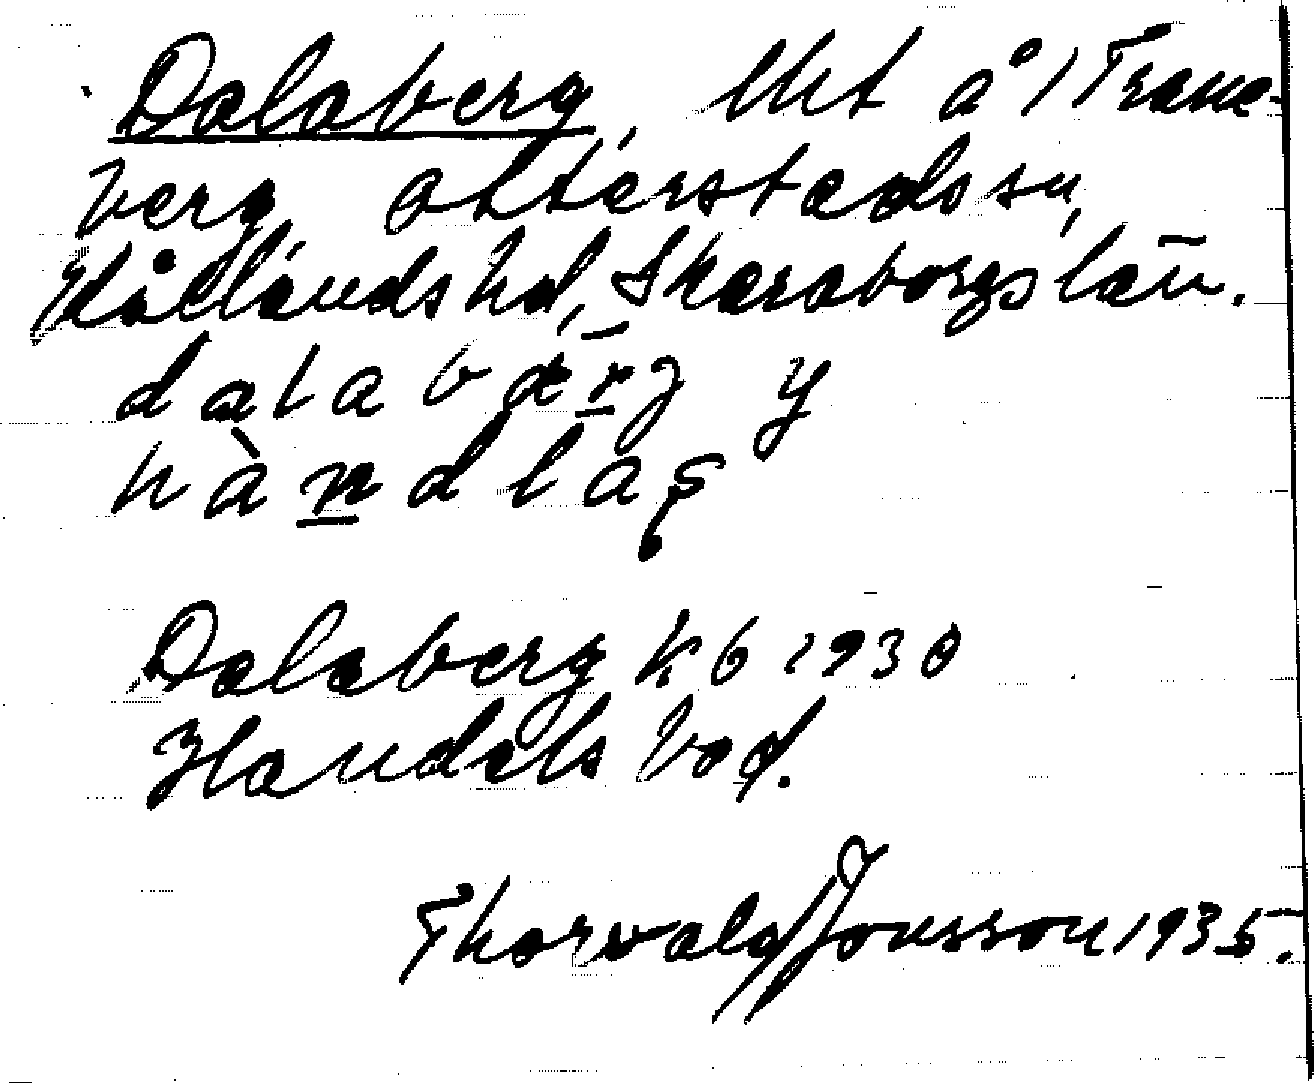 Dalaberg, lht å 1 Trane-
berg Otterstads sn,
Kållands hd, Skaraborgs län.
dalabærj y
hàndlas
Dalaberg kb 1930
Handelsbod.
Thorvald Jonsson 1935.